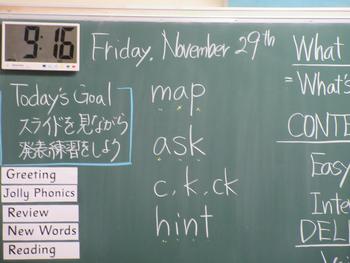 9:16
Friday, November 29th
Today's Goal
スライドを見ながら
発表練習をしよう
Greeting
Jolly Phonics
Review
New Words
Reading
map
ask
c, k, ck
hint
What
= What's
CONTE
Easy
Inte
DELI